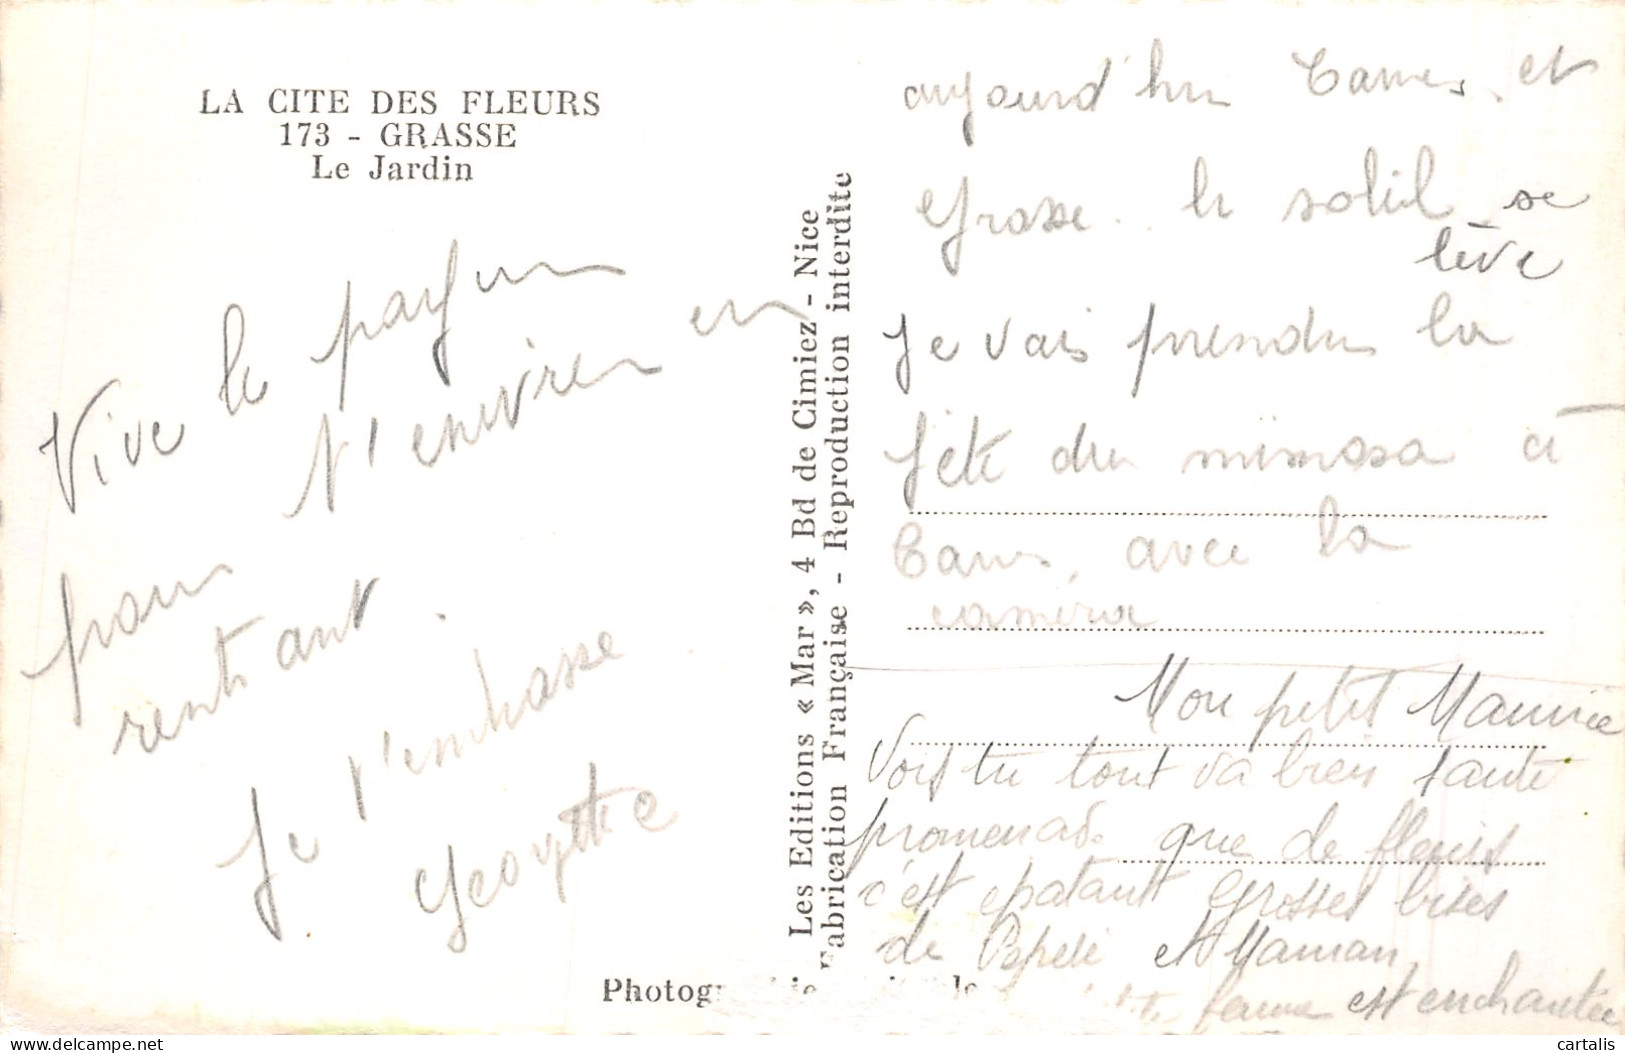 LA CITE DES FLEURS
173 - GRASSE
Le Jardin
Vive le parfum
T'enivrer en
pour
rentrant.
Je t'embrasse
Georgette
Les Editions « Mar », 4 Bd de Cimiez - Nice
Fabrication Française - Reproduction interdite
aujourd'hui Cannes et
Grasse. le soleil se
lève
Je vais prendre la
fête du mimosa à
Cannes, avec la
caméra
Mon petit Maurice
Vois tu tout va bien santé
promenade que de fleurs
c'est epatant Grosses bises
de et Maman
femme est enchantée
cartalis